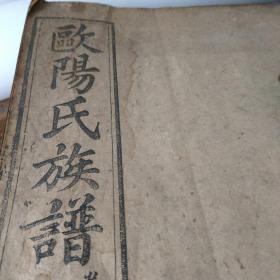 歐陽氏族譜